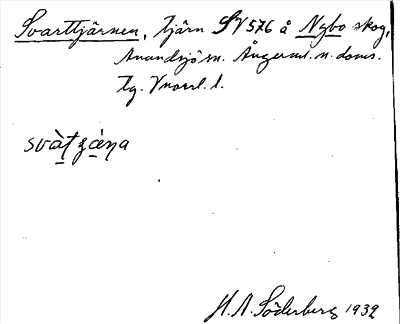 Svarttjärnen, tjärn SV 576 å Nybo skog,
Anundsjö sn. Ångerml. n. doms.
tg. Vnorrl. l.
svàtʒ́ana
H. A. Söderberg 1932